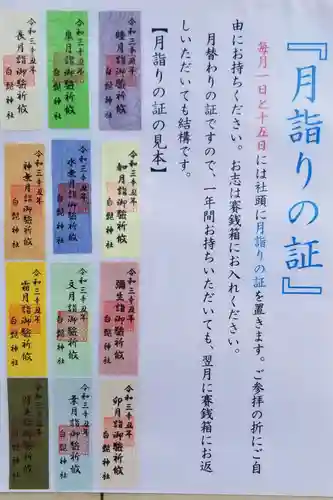 『月詣りの証』
毎月一日と十五日には社頭に月詣りの証を置きます。ご参拝の折にご自
由にお持ちください。お志は賽銭箱にお入れください。
月替わりの証ですので、一年間お持ちいただいても、翌月に賽銭箱にお返
しいただいても結構です。
【月詣りの証の見本】
令和三辛丑年
睦月詣御魃祈攸
白髭神社
令和三辛丑年
如月詣御魃祈攸
白髭神社
令和三辛丑年
彌生詣御魃祈攸
白髭神社
令和三辛丑年
卯月詣御魃祈攸
白髭神社
令和三辛丑年
皐月詣御魃祈攸
白髭神社
令和三辛丑年
水無月詣御魃祈攸
白髭神社
令和三辛丑年
文月詣御魃祈攸
白髭神社
令和三辛丑年
葉月詣御魃祈攸
白髭神社
令和三辛丑年
長月詣御魃祈攸
白髭神社
令和三辛丑年
神無月詣御魃祈攸
白髭神社
令和三辛丑年
霜月詣御魃祈攸
白髭神社